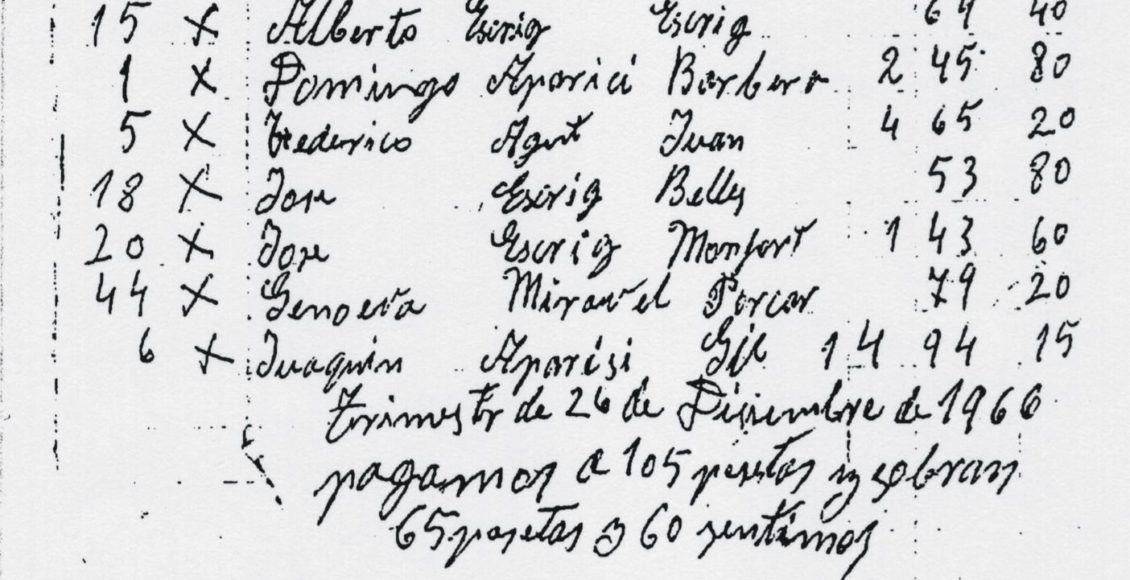 15 x Alberto Escrig Escrig 64 40
1 x Domingo Aparici Barbera 2 45 80
5 x Federico Agut Juan 4 65 20
18 x Jose Escrig Bellés 53 80
20 x Jose Escrig Monfort 1 43 60
44 x Genoeva Miravel Porcar 79 20
6 x Juaquin Aparisi Gil 14 94 15
trimestr de 26 de Disiembre de 1966
pagamos a 105 pesetas y sobran
65 pesetas y 60 sentimos